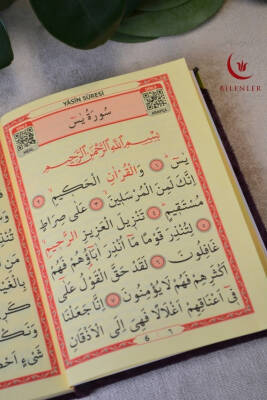 BİLENLER
YÂSİN SÛRESİ
سُورَةُ يٰسٓ
بِسْمِ اللّٰهِ الرَّحْمٰنِ الرَّحِيمِ
يٰسٓ ﴿١﴾ وَالْقُرْاٰنِ الْحَكِيمِ ﴿٢﴾
اِنَّكَ لَمِنَ الْمُرْسَلِينَ ﴿٣﴾ عَلٰى صِرَاطٍ
مُسْتَقِيمٍ ﴿٤﴾ تَنْزِيلَ الْعَزِيزِ الرَّحِيمِ
﴿٥﴾ لِتُنْذِرَ قَوْمًا مَٓا اُنْذِرَ اٰبَٓاؤُهُمْ فَهُمْ
غَافِلُونَ ﴿٦﴾ لَقَدْ حَقَّ الْقَوْلُ عَلٰٓى
اَكْثَرِهِمْ فَهُمْ لَا يُؤْمِنُونَ ﴿٧﴾ اِنَّا جَعَلْنَا
فِٓى اَعْنَاقِهِمْ اَغْلَالًا فَهِىَ اِلَى الْاَذْقَانِ
6 ٦